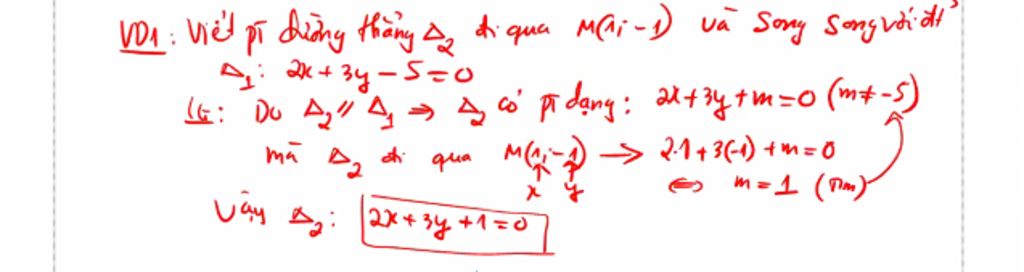 VD1: Viết pt đường thẳng Δ₂ đi qua M(1;-1) và song song với đt
Δ₁: 2x + 3y - 5 = 0
LG: Do Δ₂ // Δ₁ ⇒ Δ₂ có pt dạng: 2x + 3y + m = 0 (m ≠ -5)
mà Δ₂ đi qua M(1;-1) → 2.1 + 3(-1) + m = 0
x y
⇔ m = 1 (TM)
Vậy Δ₂: 2x + 3y + 1 = 0